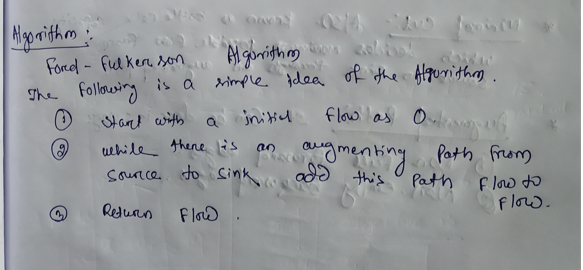 Algorithm :
Ford - Fulkerson Algorithm
The following is a simple idea of the Algorithm.
① Start with a initial flow as 0.
② while there is an augmenting path from
source to sink add this path flow to
flow.
③ Return flow.